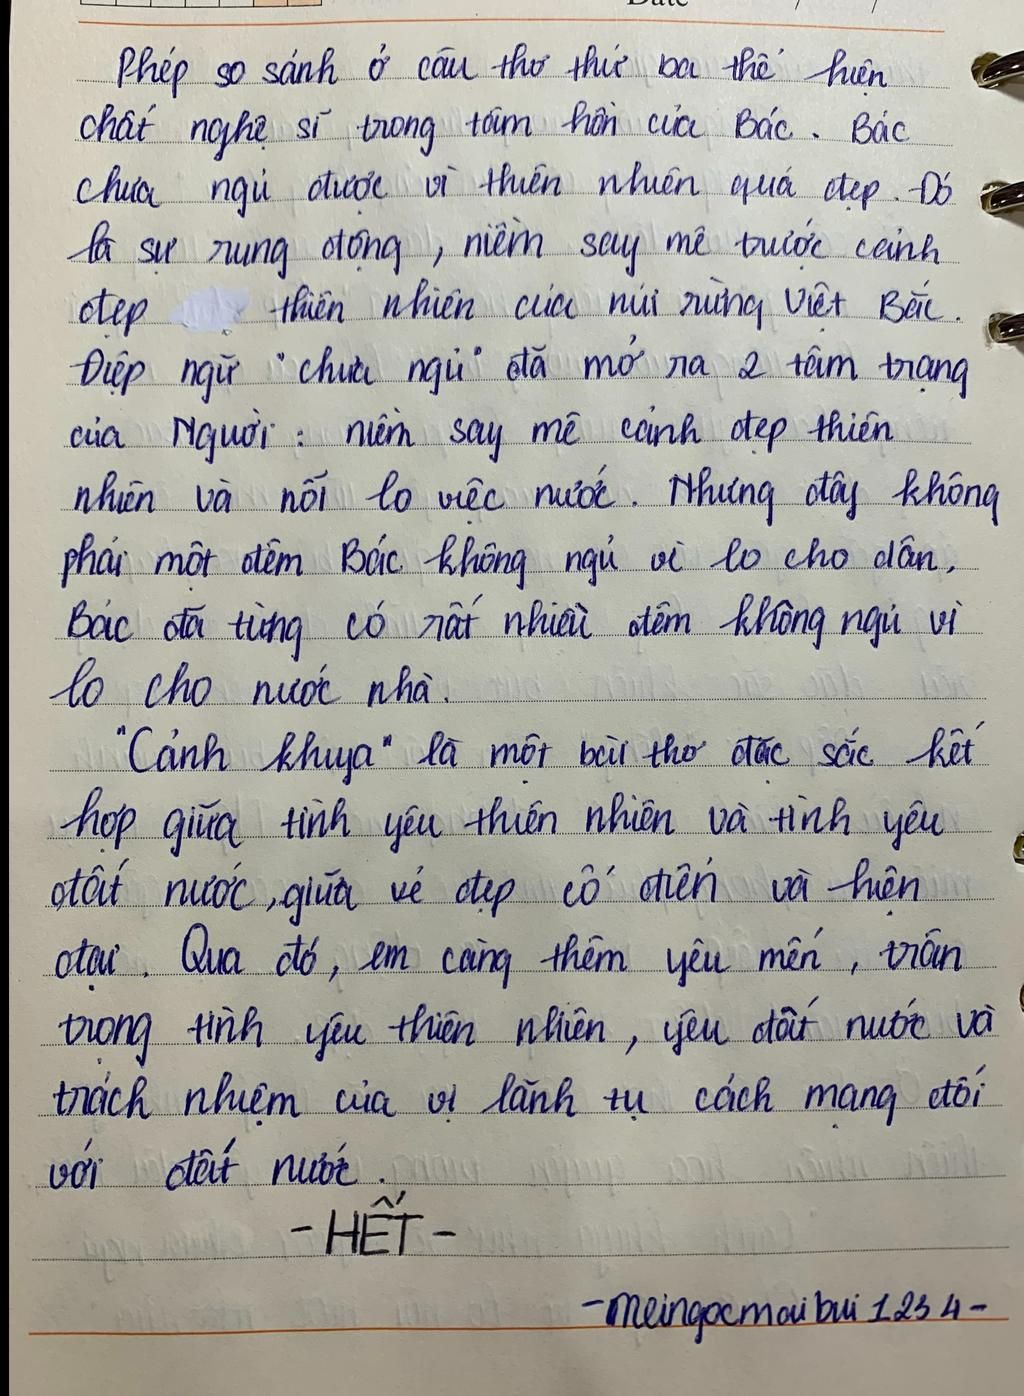 Date / /
Phép so sánh ở câu thơ thứ ba thể hiện
chất nghệ sĩ trong tâm hồn của Bác. Bác
chưa ngủ được vì thiên nhiên quá đẹp. Đó
là sự rung động, niềm say mê trước cảnh
đẹp thiên nhiên của núi rừng Việt Bắc.
Điệp ngữ "chưa ngủ" đã mở ra 2 tâm trạng
của Người: niềm say mê cảnh đẹp thiên
nhiên và nỗi lo việc nước. Nhưng đây không
phải một đêm Bác không ngủ vì lo cho dân.
Bác đã từng có rất nhiều đêm không ngủ vì
lo cho nước nhà.
"Cảnh khuya" là một bài thơ đặc sắc kết
hợp giữa tình yêu thiên nhiên và tình yêu
đất nước, giữa vẻ đẹp cổ điển và hiện
đại. Qua đó, em càng thêm yêu mến, trân
trọng tình yêu thiên nhiên, yêu đất nước và
trách nhiệm của vị lãnh tụ cách mạng đối
với đất nước.
- HẾT -
- meingocmaibui1234 -